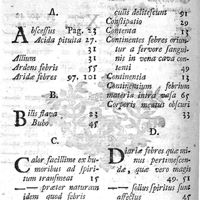 A.
Abscessus Pag. 23
Acida pituita 27
31
Allium 31
Ardens febris 55
Aridæ febres 97. 101
B.
Bilis flava 23
Bubo 45
C.
Calor facillime ex humoribus
ad spiritum
transmeat 15
præter naturam
idem quod febris
custi delitescum 91
Constipatio 29
Contenta 13
Continentes febres oriuntur
a fervore sanguinis
in vena cava contenti
19
Continentia 13
Continentium febrium
materia intra vasa 67
Corporis meatus obscuri
33
D.
Diariæ febres quæ minus
pertimescendæ,
quæ vero magis
49. 51
solius spiritus sunt
affectus 45